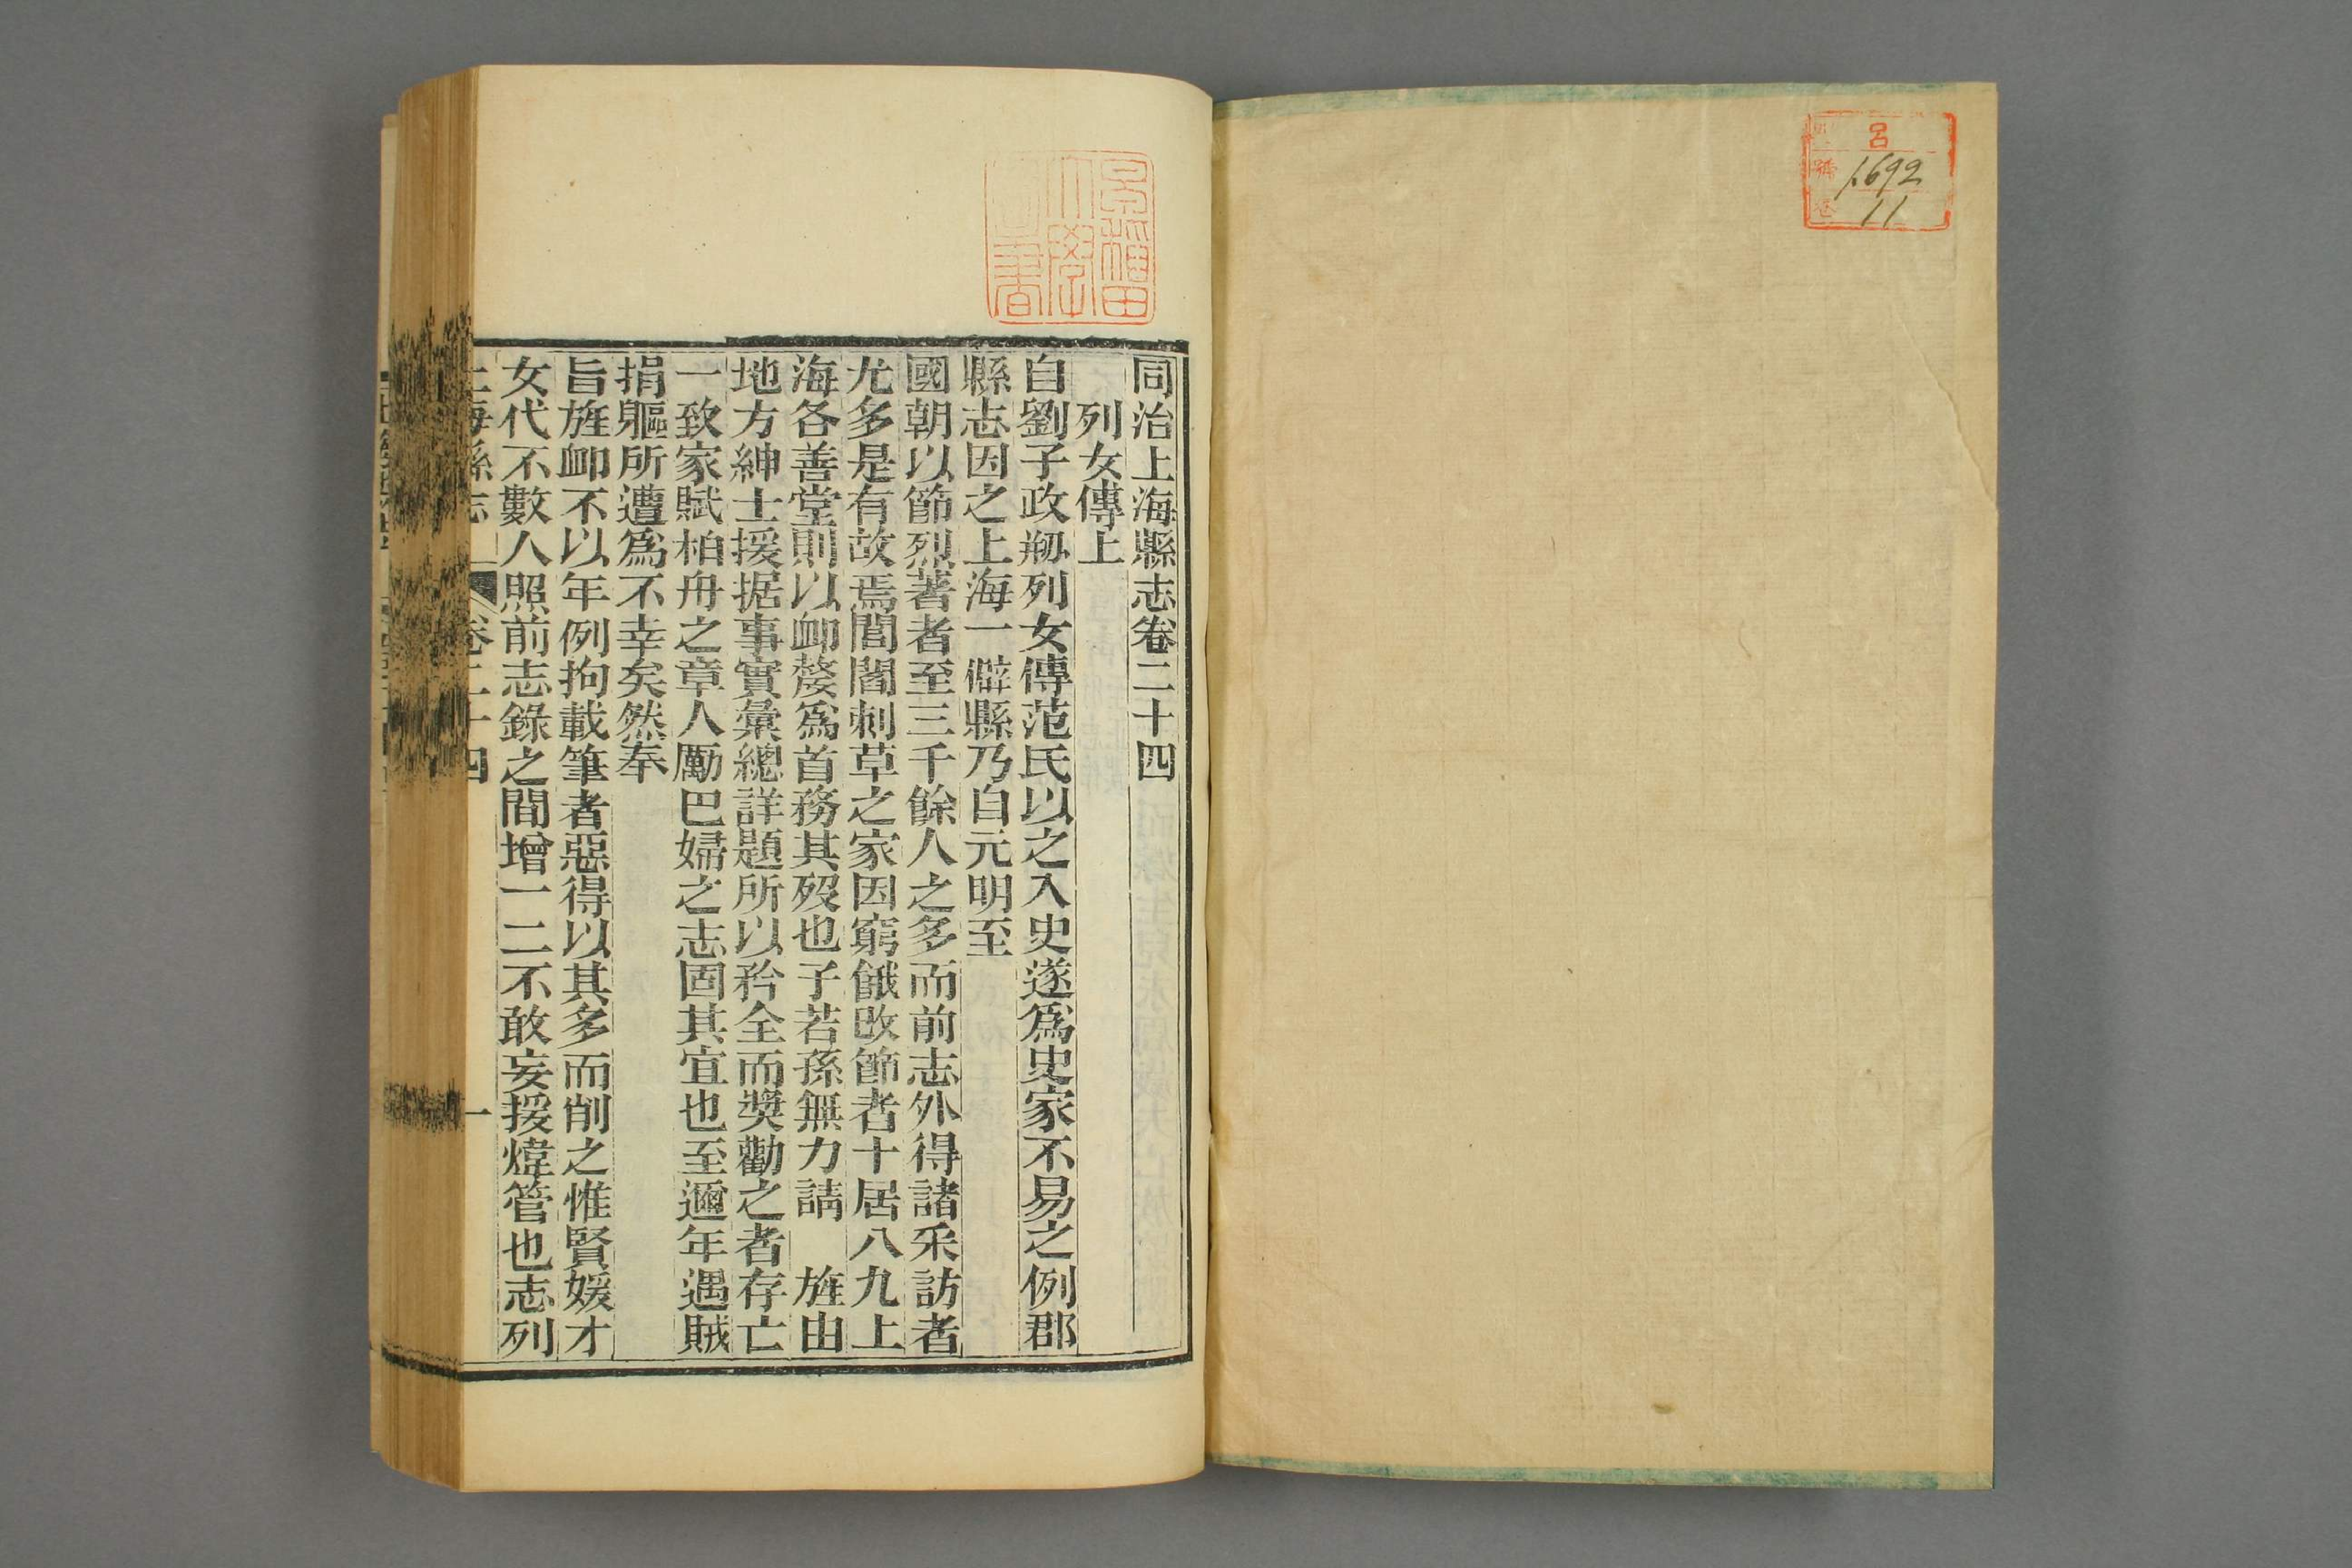 呂
號 1692
卷 11
早稲田
大學
圖書
同治上海縣志卷二十四
列女傳上
自劉子政刱列女傳范氏以之入史遂爲史家不易之例郡
縣志因之上海一僻縣乃自元明至
國朝以節烈著者至三千餘人之多而前志外得諸采訪者
尤多是有故焉閭閻刺草之家因窮餓改節者十居八九上
海各善堂則以卹嫠爲首務其歿也子若孫無力請 旌由
地方紳士援据事實彙總詳題所以矜全而奬勸之者存亡
一致家賦柏舟之章人勵巴婦之志固其宜也至邇年遇賊
捐軀所遭爲不幸矣然奉
旨旌卹不以年例拘載筆者惡得以其多而削之惟賢媛才
女代不數人照前志錄之間增一二不敢妄援煒管也志列
上海縣志 卷二十四 一